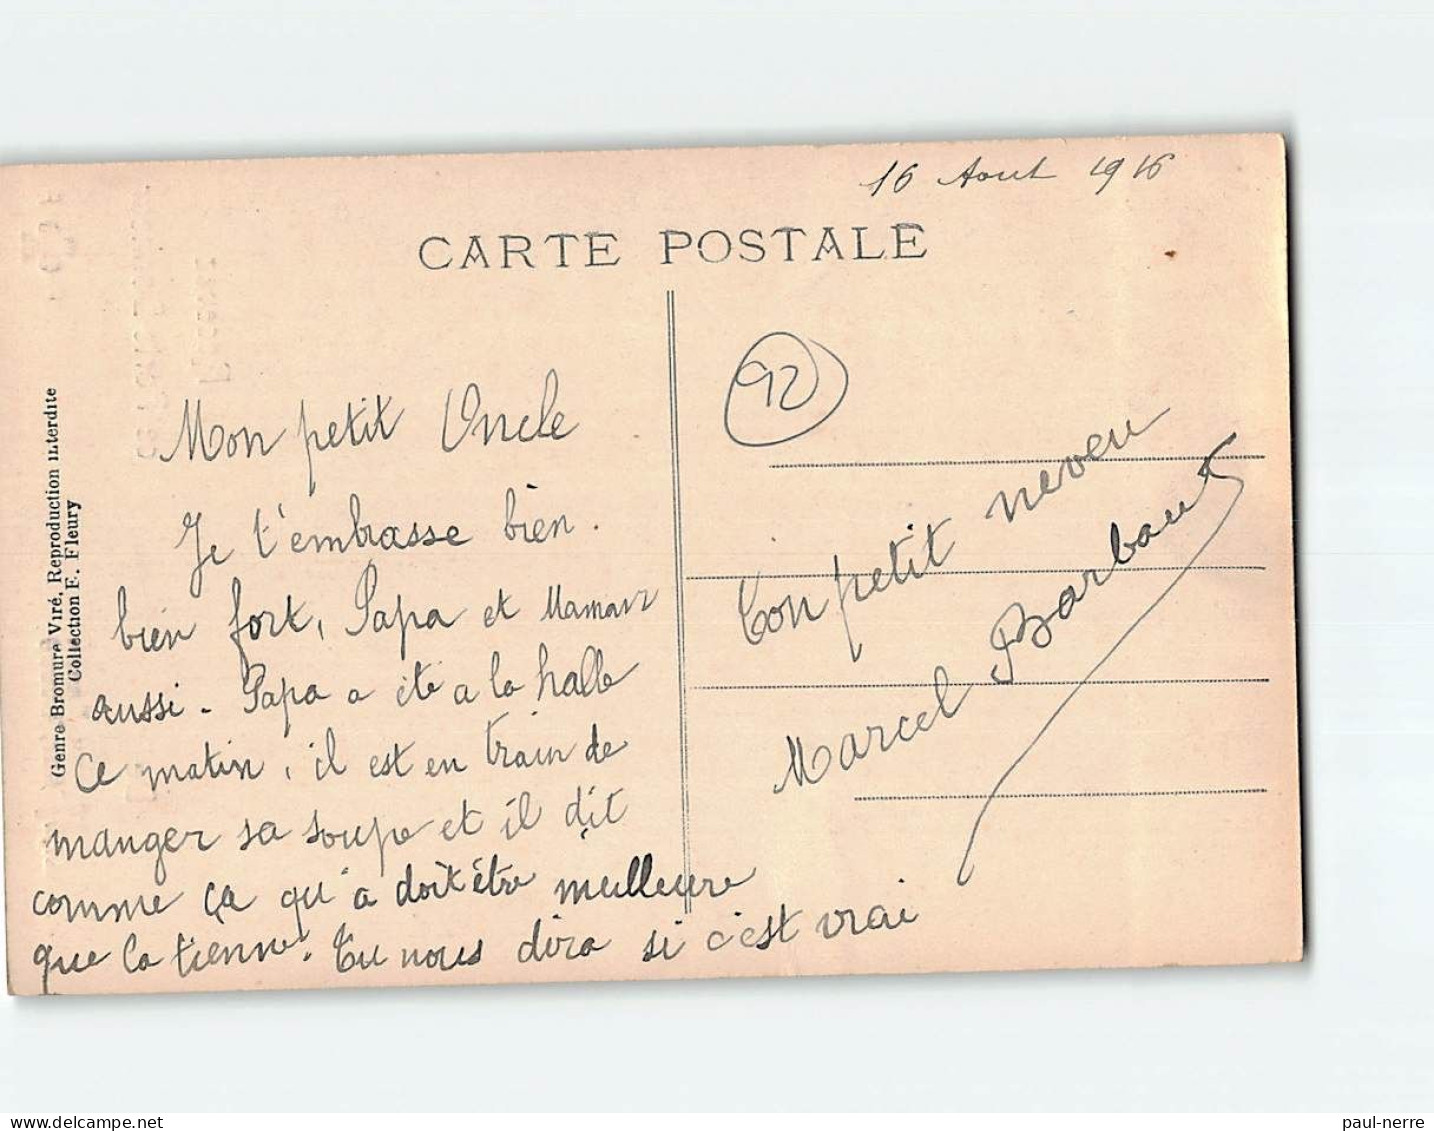 16 Aout 1916
CARTE POSTALE
92
Mon petit Uncle
Je t'embrasse bien.
bien fort, Papa et Maman
aussi. Papa a été a la halle
Ce matin, il est en train de
manger sa soupe et il dit
comme ça qu'a doit être meilleure
que la tienne. Tu nous dira si c'est vrai
Ton petit neveu
Marcel Barbaut
Genre Bromure Viré, Reproduction interdite
Collection E. Fleury
paul-nerre